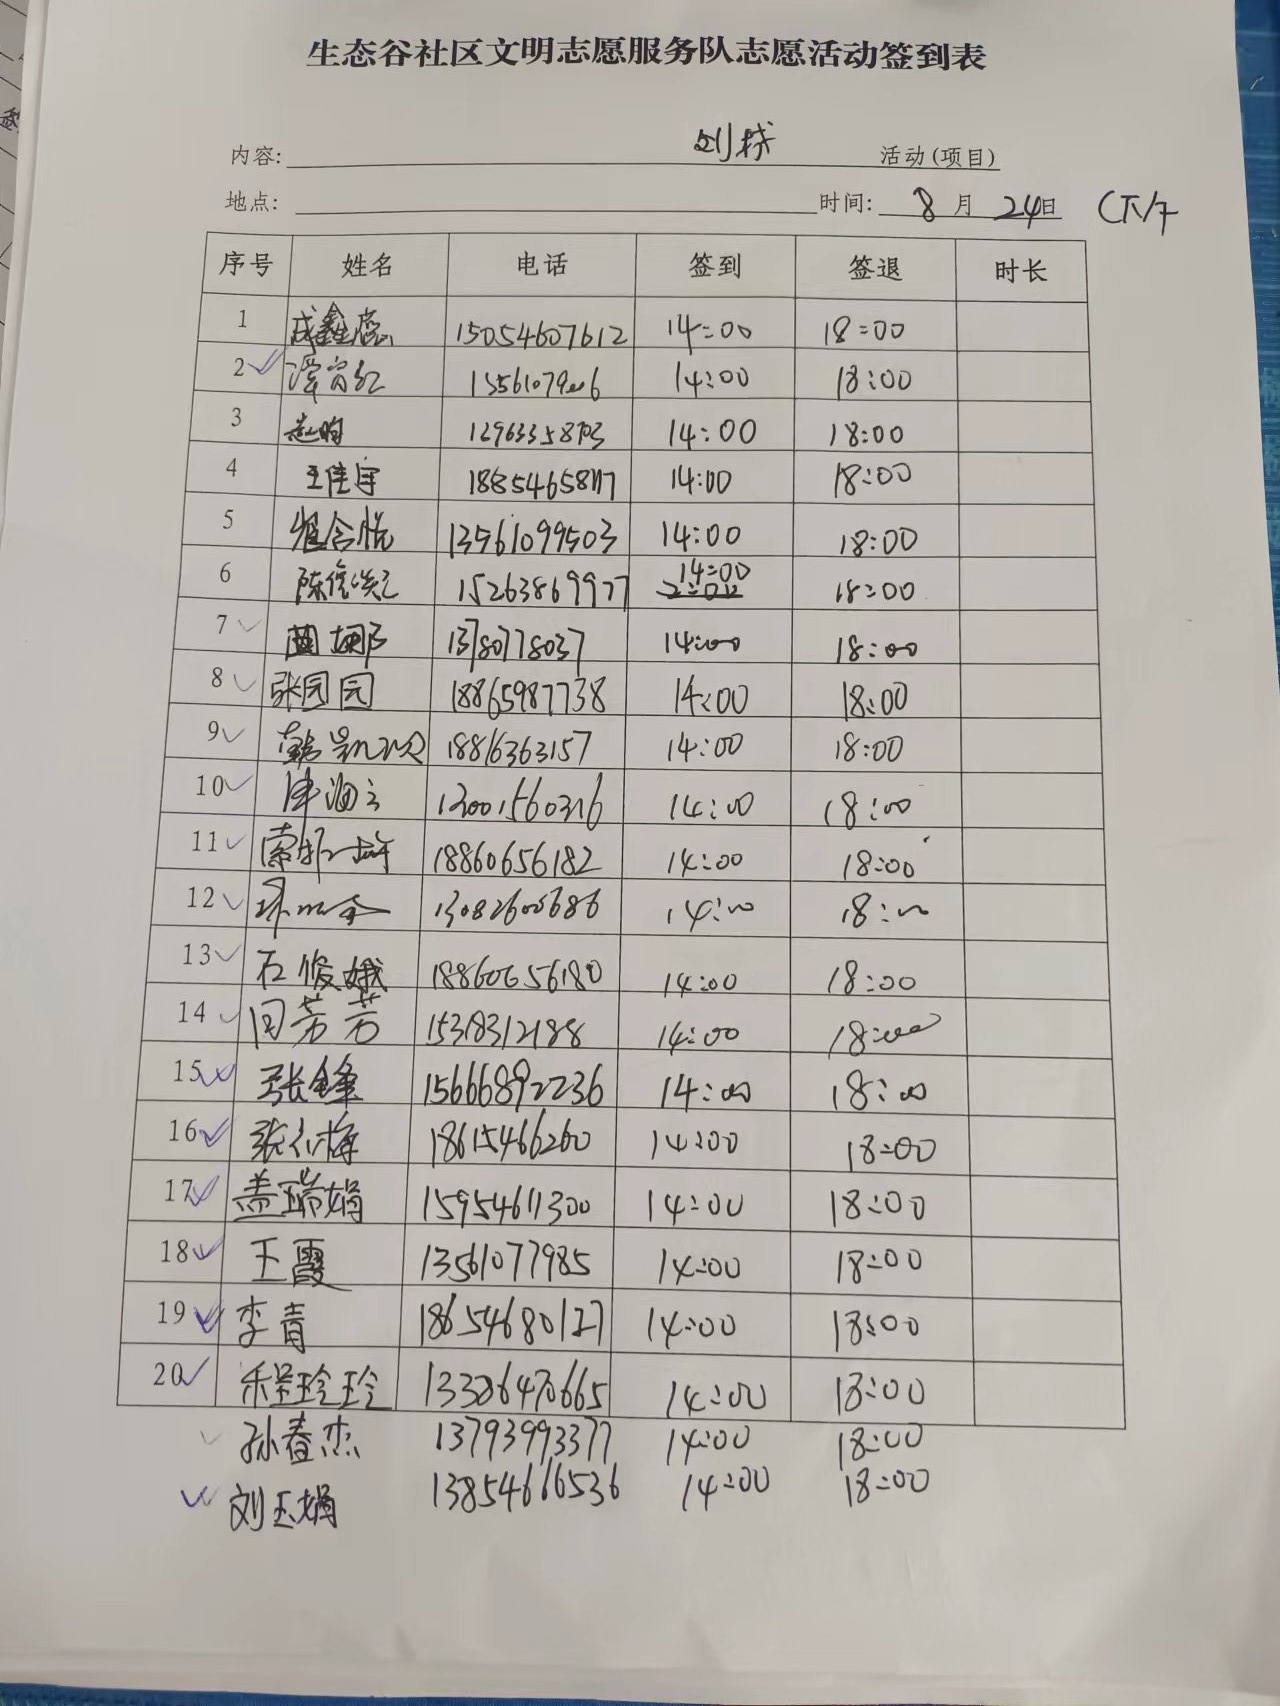 生态谷社区文明志愿服务队志愿活动签到表
内容: 活动(项目)
地点: 时间: 8月24日 (下午
序号 姓名 电话 签到 签退 时长
1 成鑫 15054607612 14:00 18:00
2 14:00 18:00
3 14:00 18:00
4 王佳宇 14:00 18:00
5 13561099503 14:00 18:00
6 15263869977 14:00 18:00
7 13780778037 14:00 18:00
8 张园园 18865987738 14:00 18:00
9 18816363157 14:00 18:00
10 14:00 18:00
11 18860656182 14:00 18:00
12 14:00 18:00
13 石俊娥 18860656180 14:00 18:00
14 闫芳芳 15318312188 14:00 18:00
15 张锋 15666892236 14:00 18:00
16 18615466260 14:00 18:00
17 盖瑞娟 15954611300 14:00 18:00
18 王霞 13561077985 14:00 18:00
19 李青 18654680127 14:00 18:00
20 程玲玲 14:00 18:00
孙春杰 13793993377 14:00 18:00
刘玉娟 13854666536 14:00 18:00